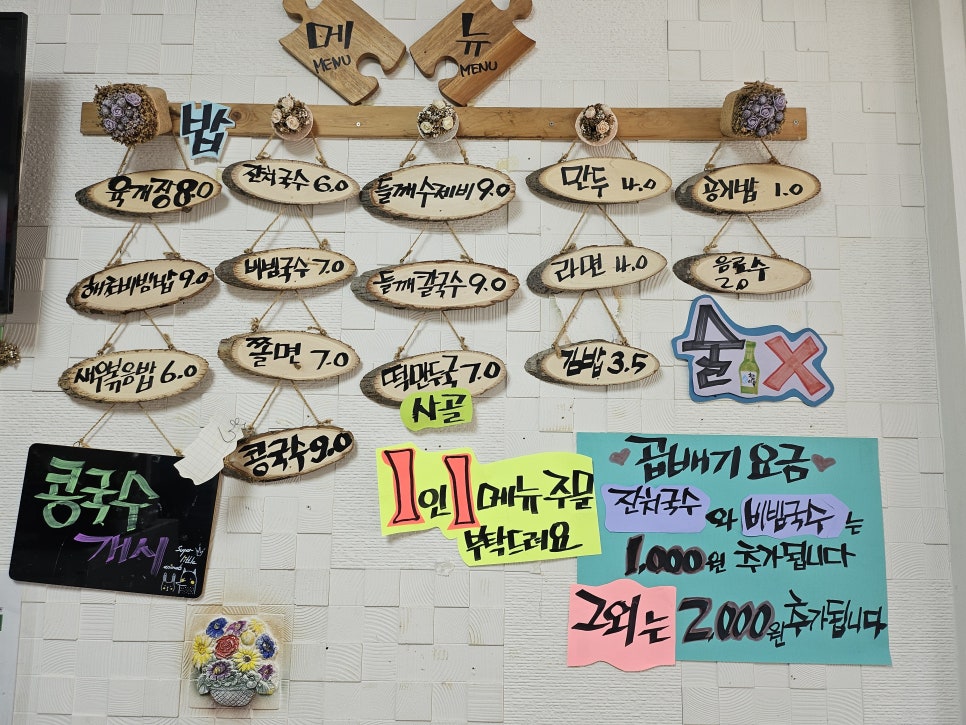 메뉴
MENU MENU
밥
육개장 8.0
해초비빔밥 9.0
새우볶음밥 6.0
잔치국수 6.0
비빔국수 7.0
쫄면 7.0
콩국수 9.0
들깨수제비 9.0
들깨칼국수 9.0
떡만두국 7.0
사골
만두 4.0
라면 4.0
김밥 3.5
공기밥 1.0
음료수
2.0
술 X
콩국수
개시
1인 1메뉴 주문
부탁드려요
곱배기 요금
잔치국수 와 비빔국수 는
1,000원 추가됩니다
그외는 2,000원 추가됩니다